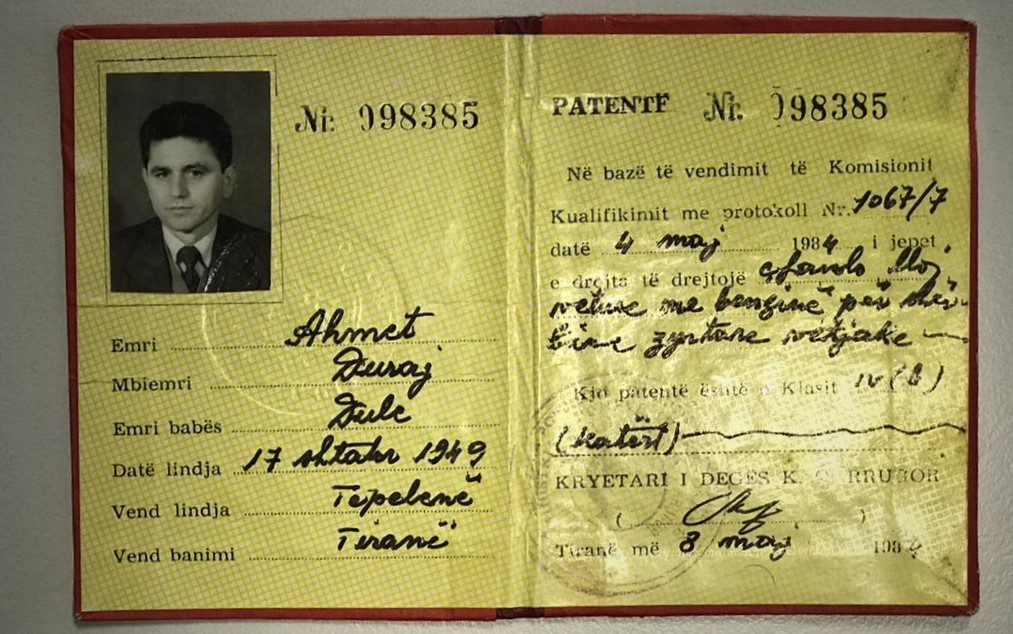 Nr. 098385
Emri Ahmet
Mbiemri Duraj
Emri babës Dule
Datë lindja 17 shtator 1949
Vend lindja Tepelenë
Vend banimi Tiranë
PATENTE Nr. 098385
Në bazë të vendimit të Komisionit
Kualifikimit me protokoll Nr. 1067/7
datë 4 maj 1984 i jepet
e drejta të drejtojë çfardo lloj
veture me benzinë për shër-
bime zyrtare vetjake
Kjo patentë është e Klasit IV (B)
(katërt)
KRYETARI I DEGES K. Q. RRUGOR
Tiranë më 8 maj 1984